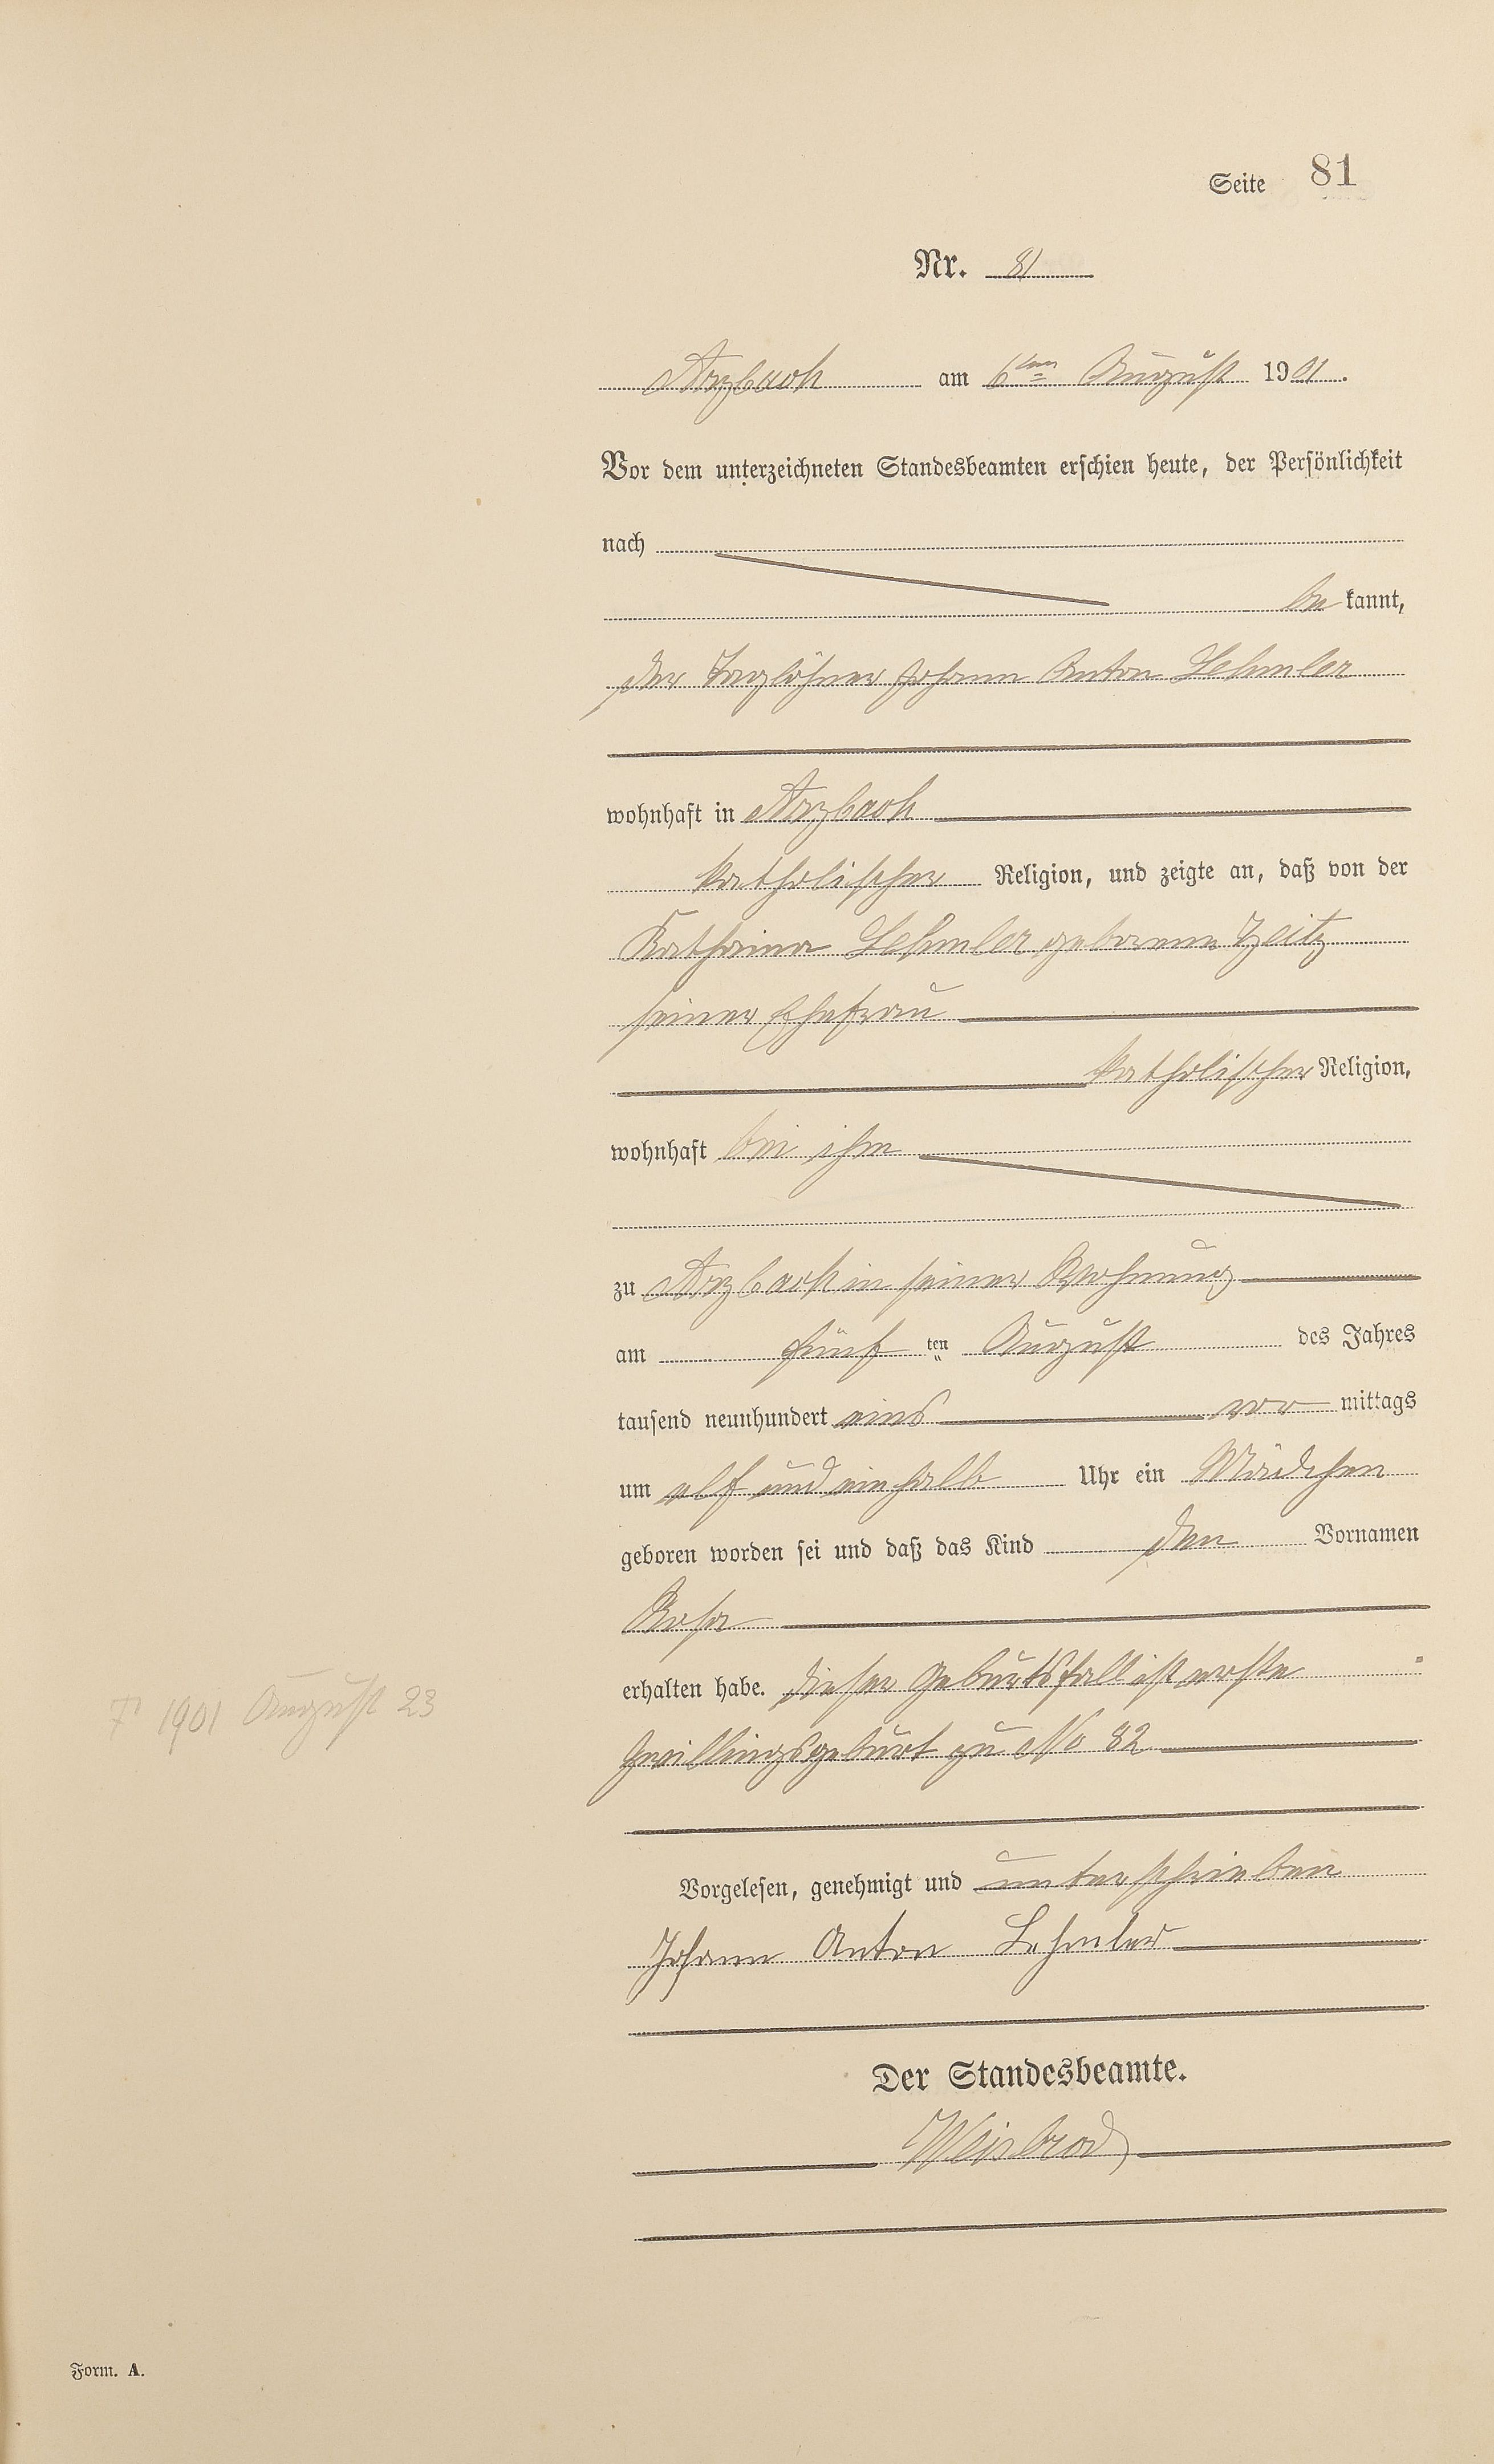 Seite 81
Nr. 81
Arzbach am 6ten August 1901.
Vor dem unterzeichneten Standesbeamten erschien heute, der Persönlichkeit
nach
be kannt,
der Taglöhner Johann Anton Lehmler
wohnhaft in Arzbach
katholischer Religion, und zeigte an, daß von der
Katharina Lehmler geborenen Zeitz
seiner Ehefrau
katholischer Religion,
wohnhaft bei ihm
zu Arzbach in seiner Wohnung
am fünf ten August des Jahres
tausend neunhundert eins vor mittags
um elf und einhalb Uhr ein Mädchen
geboren worden sei und daß das Kind den Vornamen
Rosa
erhalten habe. Dieser Geburtsfall ist erste
† 1901 August 23
Zwillingsgeburt zu No 82
Vorgelesen, genehmigt und unterschrieben
Johann Anton Lehmler
Der Standesbeamte.
Weisbrod
Form. A.